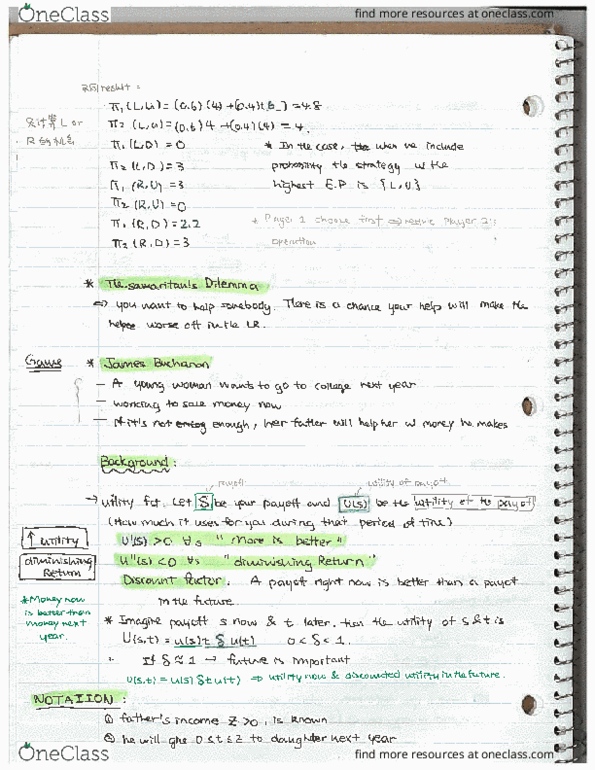 OneClass
find more resources at oneclass.com
result :
π₁ (L,U) = (0.6) (4) + (0.4)(6) = 4.8
只计算 L or
π₂ (L,U) = (0.6) 4 + (0.4)(4) = 4.
R
π₁ (L,D) = 0
* In the case, when we include
π₂ (L,D) = 3
probability the strategy w the
π₁ (R,U) = 3
highest E.P is {L,U}
π₂ (R,U) = 0
π₁ (R,D) = 2.2
* Player 1 choose first Player 2's
π₂ (R,D) = 3
operation
* The samaritan's Dilemma
⇒ you want to help somebody. There is a chance your help will make the
helpee worse off in the LR.
Game
* James Buchanon
- A young woman wants to go to college next year
- working to save money now
- if it's not enough, her father will help her w money he makes
Background :
payoff
utility of payoff
→ utility fct. Let S be your payoff and U(s) be the utility of the payoff
(How much it uses for you during that period of time)
↑ utility
U'(s) > 0 ∀ s "More is better"
diminishing Return
U''(s) < 0 ∀ s "diminishing Return"
Discount factor. A payoff right now is better than a payoff
in the future
* Money now is better than money next year.
* Imagine payoff s now & t later. then the utility of s & t is
U(s,t) = u(s) t δ u(t) 0 < δ < 1.
If δ ≈ 1 → future is important
U(s,t) = u(s) δ t u(t) ⇒ utility now & discounted utility in the future.
NOTATION :
① father's income Z > 0, is known
② he will give 0 ≤ t ≤ Z to daughter next year
OneClass
find more resources at oneclass.com